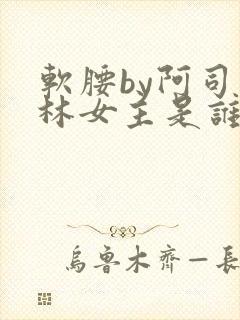 軟腰by阿司
林女主是誰
烏魯木齊—長